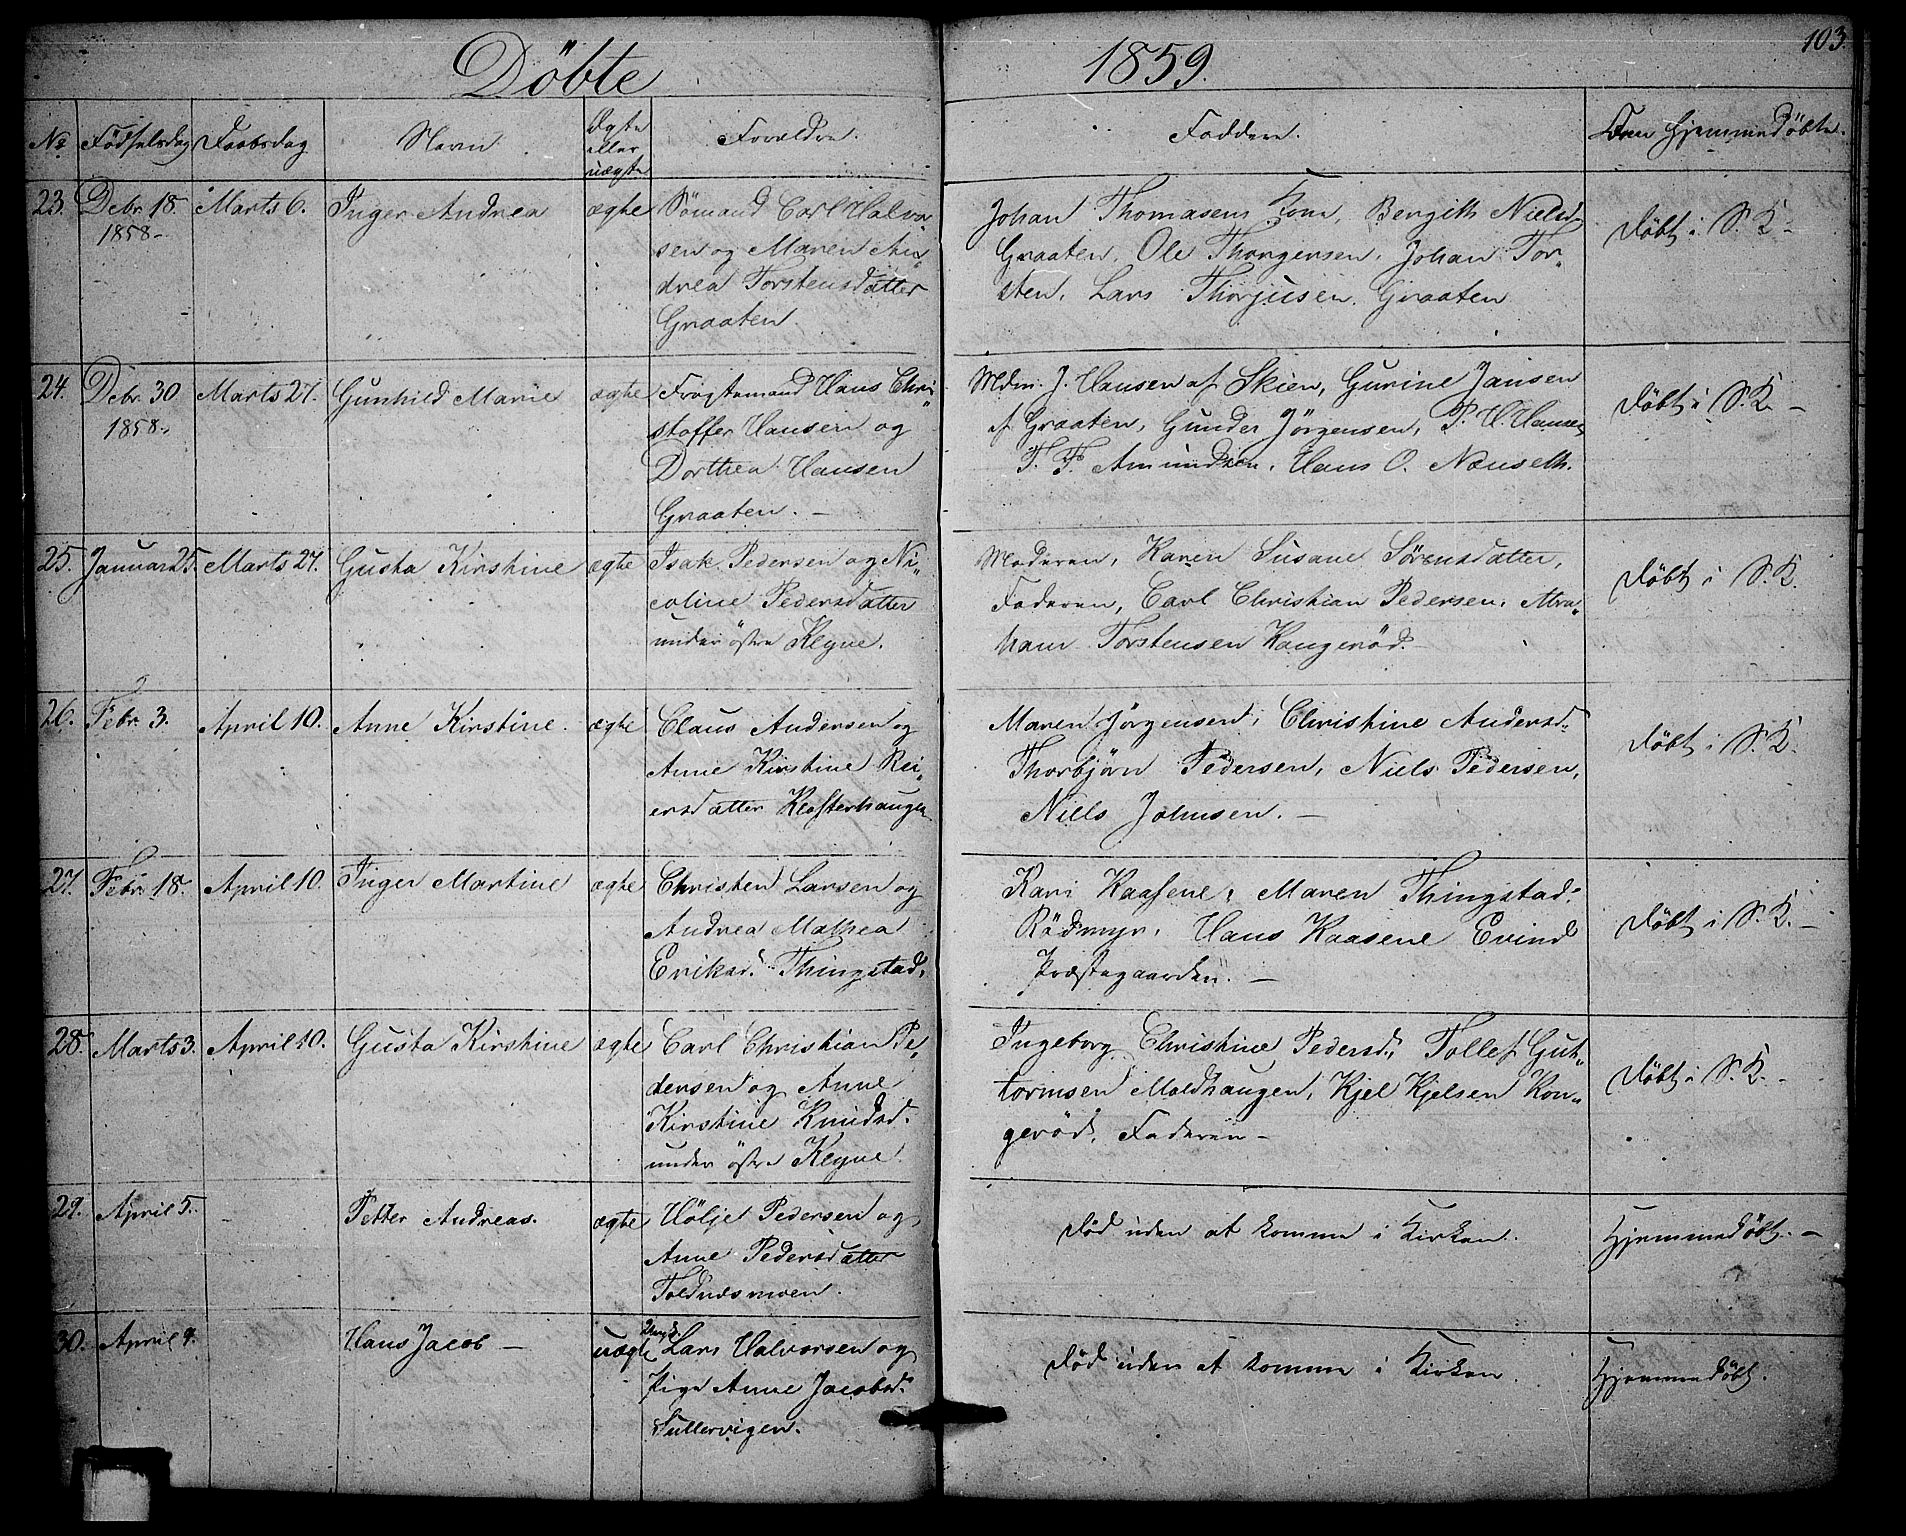 Döbte 1859. 103.
No Födselsdag Daabsdag Navn Ægte eller uægte Forældre. Faddere. Om Hjemmedöbte.
23. Debr 18. 1858 Marts 6. Inger Andrea ægte
Sömand Carl Halvor„
sen og Maren An„
drea Torstensdatter
Graaten.
Johan Thomasens Kone, Bergith Nielsd.
Graaten, Ole Thorgersen, Johan Tor„
sten, Lars Thorjusen Graaten
Döbt i S. K.
24. Debr. 30 1858. Marts 27. Gunhild Marie ægte
Fragtemand Hans Chri„
stoffer Hansen og
Dorthea Hansen
Graaten. –
Mdm. J. Hansen af Skien, Gurine Jansen
af Graaten, Gunder Jörgensen, P. H. Hansen
T. F. Amundsen, Hans O. Næuseth.
Döbt i S. K. –
25. Januar 25. Marts 27. Gusta Kirstine ægte
Isak Pedersen og Ni„
coline Pedersdatter
under östre Klyve.
Moderen, Karen Susane Sörensdatter,
Faderen, Carl Christian Pedersen, Abra„
ham Torstensen Kongeröd.
Döbt i S. K.
26. Febr. 3. April 10. Anne Kirstine. ægte
Claus Andersen og
Anne Kirstine Rei„
ersdatter Klosterhaugen
Maren Jörgensen, Christine Andersd.
Thorbjörn Pedersen, Niels Pedersen,
Niels Johnsen. –
Döbt i S. K.
27. Febr. 18. April 10. Inger Martine ægte
Christen Larsen og
Andrea Mathea
Eriksd. Thingstad.
Kari Kaasene, Maren Thingstad.
Rödmyr, Hans Kaasene Evind
Præstegaarden. –
Döbt i S. K. –
28. Marts 3. April 10. Gusta Kirstine ægte
Carl Christian Pe„
dersen og Anne
Kirstine Knudsd.
under östre Klyve.
Ingeborg Christine Pedersd., Tollef Gut„
tormsen Moldhaugen, Kjel Kjelsen Kon„
geröd, Faderen –
Döbt i S. K. –
29. April 5. – Petter Andreas. ægte
Hölje Pedersen og
Anne Pedersdatter
Toldnæsmoen.
Död uden at komme i Kirken.
Hjemmedöbt. –
30. April 9. Hans Jacob – uægte
Ungk. Lars Halvorsen og
Pige Anne Jacobsd.
Tullervigen.
Död uden at komme i Kirken.
Hjemmedöbt.